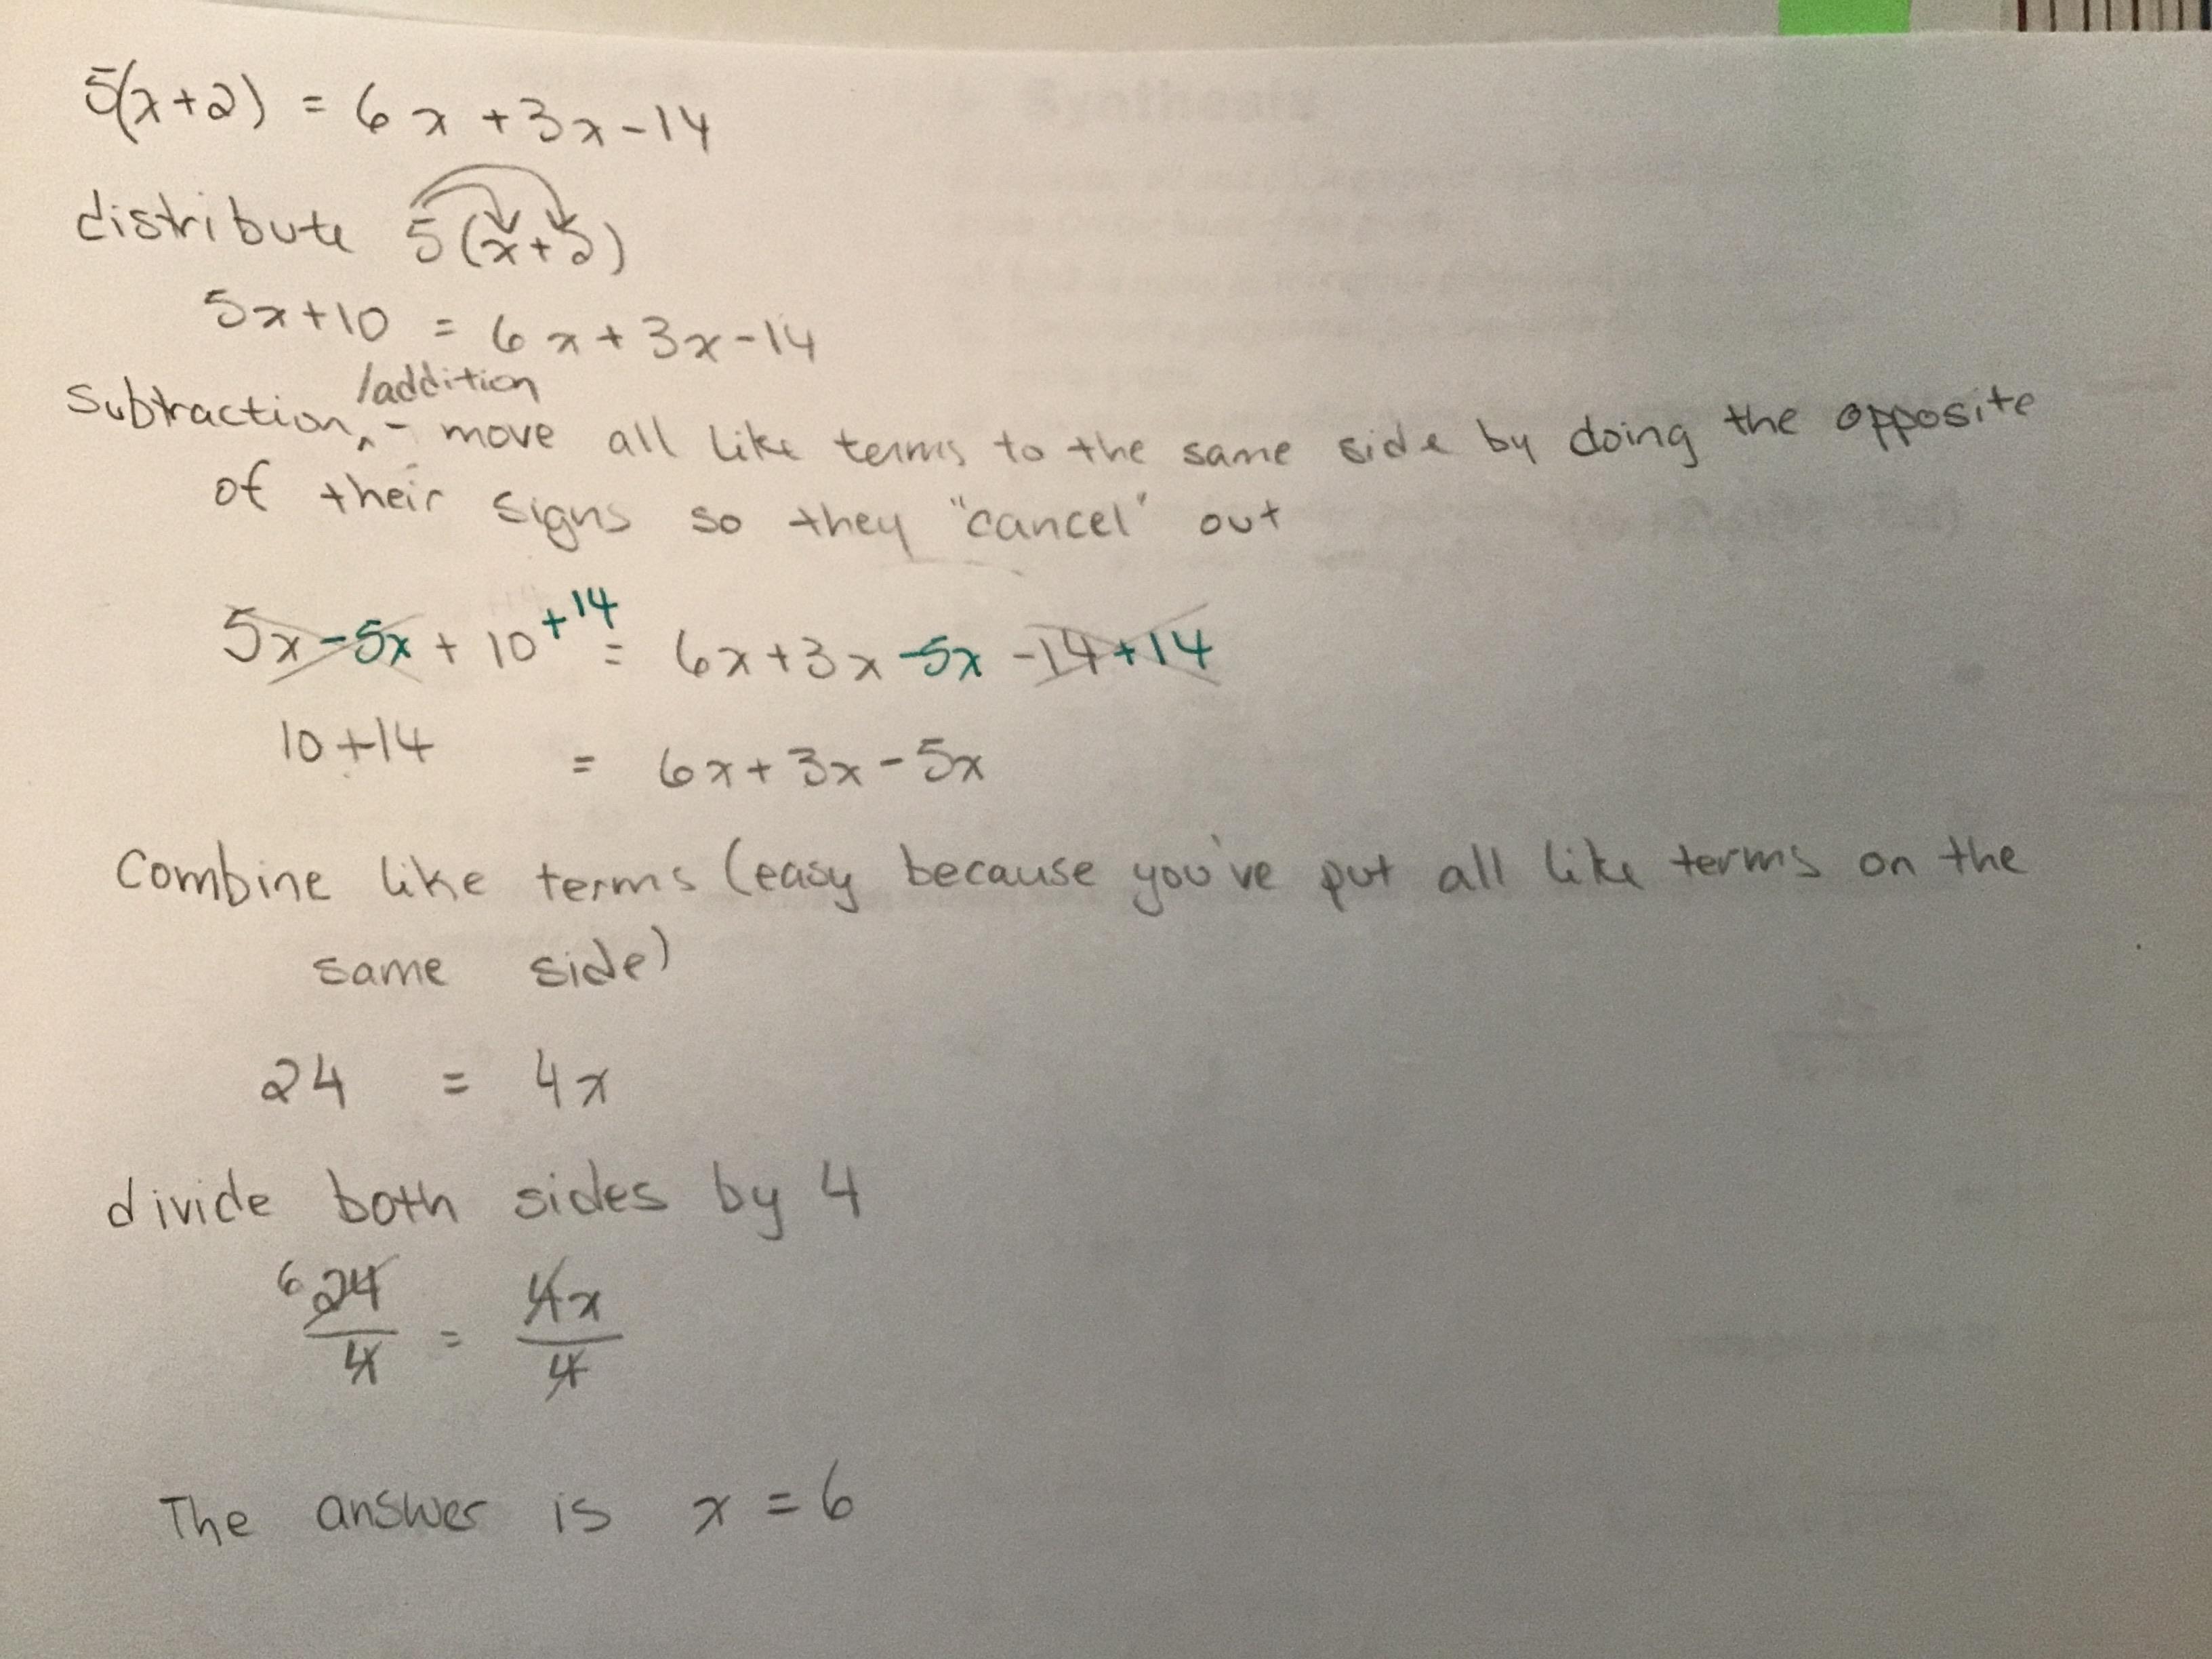 5(x+2) = 6x +3x-14
distribute 5(x+2)
5x+10 = 6x+3x-14
/addition
Subtraction‸- move all like terms to the same side by doing the opposite
of their signs so they "cancel" out
5x-5x + 10 +14 = 6x+3x -5x -14+14
10+14 = 6x+3x-5x
Combine like terms (easy because you've put all like terms on the
same side)
24 = 4x
divide both sides by 4
6 24/4 = 4x/4
The answer is x = 6